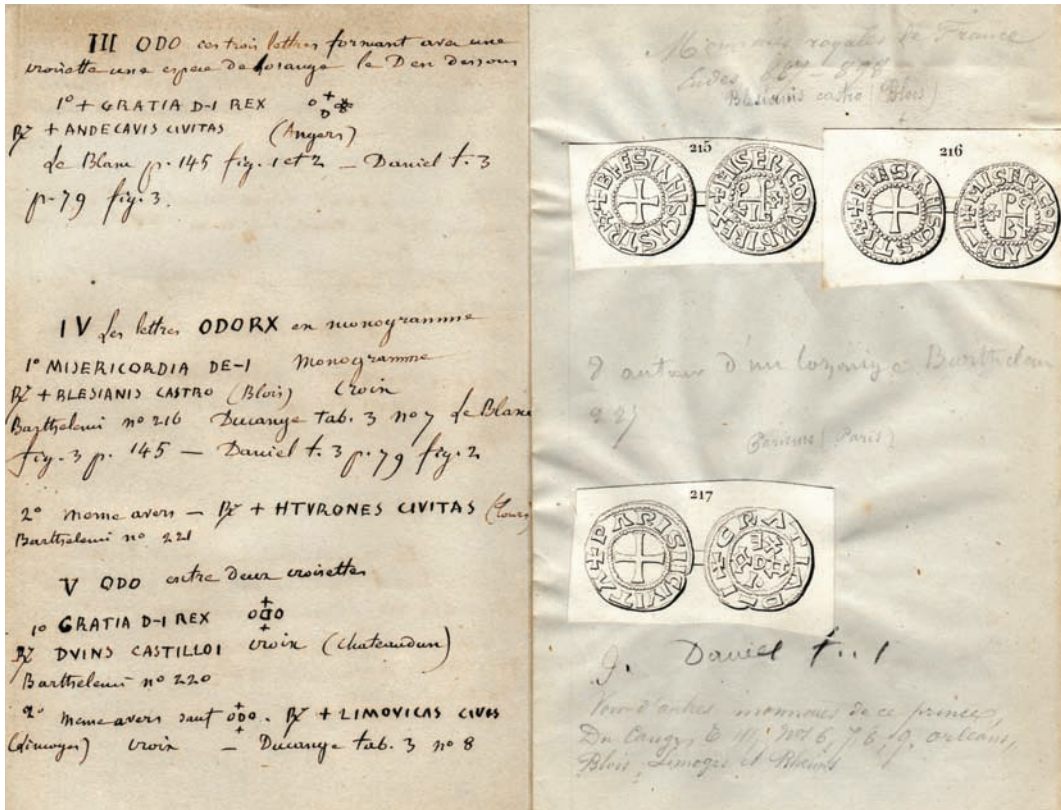 III ODO ces trois lettres formant avec une
croisette une espece de losange le D en dessous
1° + GRATIA D-I REX
℞ + ANDECAVIS CIVITAS (Angers)
Le Blanc p. 145 fig. 1 et 2 — Daniel t. 3
p. 79 fig. 3.
IV Les lettres ODORX en monogramme
1° MISERICORDIA DE-I Monogramme
℞ + BLESIANIS CASTRO (Blois) Croix
Barthelemi n° 216 Ducange tab. 3 n° 7 Le Blanc
fig. 3 p. 145 — Daniel t. 3 p. 79 fig. 2
2° meme avers — ℞ + HTVRONES CIVITAS (Tours)
Barthelemi n° 221
V ODO entre deux croisettes
1° GRATIA D-I REX ODO
℞ DVINS CASTILLOI croix (chateaudun)
Barthelemi n° 220
2° meme avers sauf ODO. ℞ + LIMOVICAS CIVES
(Limoges) croix — Ducange tab. 3 n° 8
royales de France
Eudes 887 - 898
Blesianis castro (Blois)
215
+BLESIANISCASTR
+MISERICORDIADIREX
216
+BLESIANSCASTR
+MISERICORDIADEI
autour d'un Barthelemi
(Paris)
217
+PARISIICIVITA
+GRATIADEI
Daniel t. 1
Voir d'autres monnaies de ce prince,
Du Cange, 6, 7, 8, 9, orleans,
Blois, Limoges et